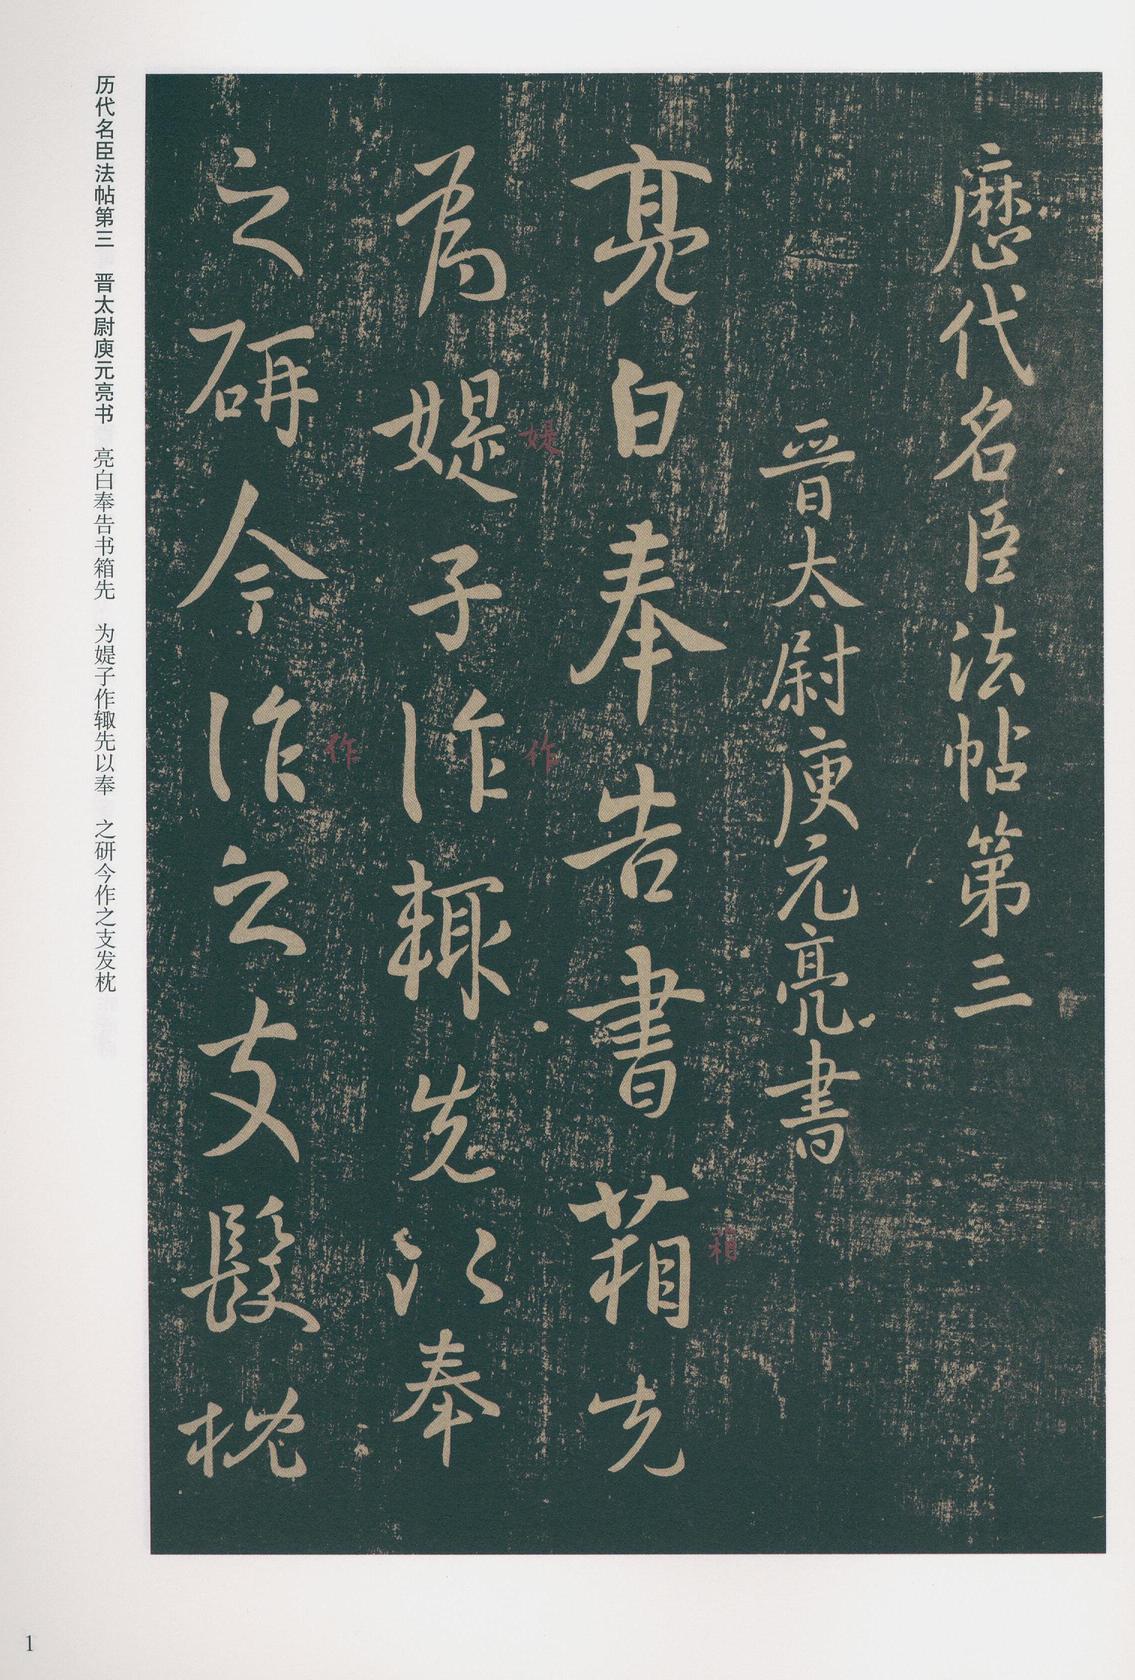 歷代名臣法帖第三
晋太尉庾元亮書
亮白奉告書葙先
為媞子作輙先以奉
之研今作之支髮枕
箱
媞
作
作
历代名臣法帖第三 晋太尉庾元亮书 亮白奉告书箱先 为媞子作辄先以奉 之研今作之支发枕
1